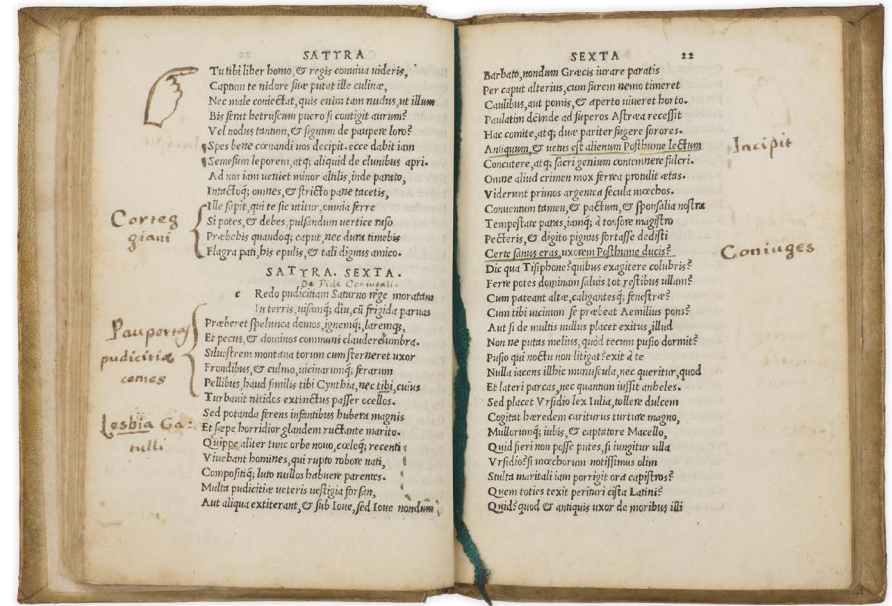 SATYRA
Tu tibi liber homo, & regis conuiua uideris,
Captum te nidore suæ putat ille culinæ,
Nec male coniectat, quis enim tam nudus, ut illum
Bis ferat hetruscum puero si contigit aurum?
Vel nodus tantum, & signum de paupere loro?
Spes bene cœnandi uos decipit. ecce dabit iam
Semesum leporem, atq; aliquid de clunibus apri.
Ad nos iam ueniet minor altilis, inde parato,
Intactoq; omnes, & stricto pane tacetis,
Ille sapit, qui te sic utitur, omnia ferre
Si potes, & debes, pulsandum uertice raso
Præbebis quandoq; caput, nec dura timebis
Flagra pati, his epulis, & tali dignus amico.
Corteg
giani
SATYRA. SEXTA.
De Fide Coniugali
c Redo pudicitiam Saturno rege moratam
In terris, uisamq; diu, cũ frigida paruas
Præberet spelunca domos, ignemq;, laremq;,
Et pecus, & dominos communi clauderet umbra.
Siluestrem montana torum cum sterneret uxor
Frondibus, & culmo, uicinarumq; ferarum
Pellibus, haud similis tibi Cynthia, nec tibi, cuius
Turbauit nitidos extinctus passer ocellos.
Sed potanda ferens infantibus hubera magnis
Et sæpe horridior glandem ructante marito.
Quippe aliter tunc orbe nouo, cœloq; recenti
Viuebant homines, qui rupto robore nati,
Compositiq; luto nullos habuere parentes.
Multa pudicitiæ ueteris uestigia forsan,
Aut aliqua extiterant, & sub Ioue, sed Ioue nondum
Paupertas
pudicitiæ
comes
Lesbia Ca:
tulli
SEXTA 22
Barbato, nondum Græcis iurare paratis
Per caput alterius, cum furem nemo timeret
Caulibus, aut pomis, & aperto uiueret horto.
Paulatim deinde ad superos Astræa recessit
Hac comite, atq; duæ pariter fugere sorores.
Antiquum, & uetus est alienum Posthume lectum
Concutere, atq; sacri genium contemnere fulcri.
Omne aliud crimen mox ferrea protulit ætas.
Viderunt primos argentea secula mœchos.
Conuentum tamen, & pactum, & sponsalia nostra
Tempestate paras, iamq; à tonsore magistro
Pecteris, & digito pignus fortasse dedisti
Certe sanus eras, uxorem Posthume ducis?
Dic qua Tisiphone? quibus exagitere colubris?
Ferre potes dominam saluis tot restibus ullam?
Cum pateant altæ, caligantesq; fenestræ?
Cum tibi uicinum se præbeat Aemilius pons?
Aut si de multis nullus placet exitus, illud
Non ne putas melius, quòd tecum pusio dormit?
Pusio qui noctu non litigat? exit à te
Nulla iacens illhic munuscula, nec queritur, quod
Et lateri parcas, nec quantum iussit anheles.
Sed placet Vrsidio lex Iulia, tollere dulcem
Cogitat hæredem cariturus turture magno,
Mullorumq; iubis, & captatore Macello,
Quid fieri non posse putes, si iungitur ulla
Vrsidio? si mœchorum notissimus olim
Stulta maritali iam porrigit ora capistro?
Quem toties texit perituri cista Latini?
Quid? quod & antiquis uxor de moribus illi
Incipit
Coniuges